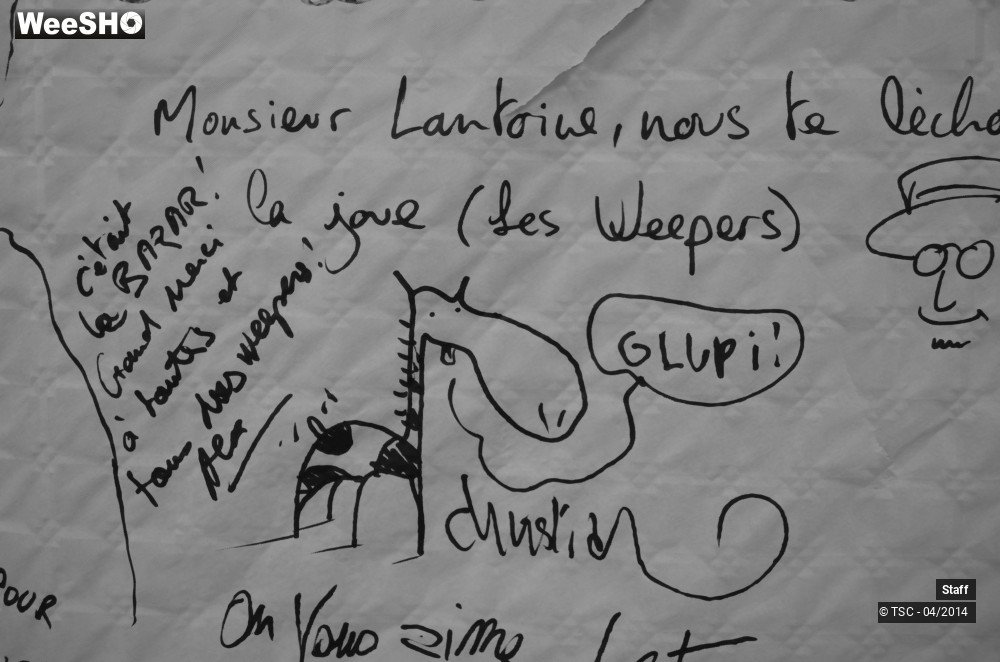 WeeSHO
Monsieur Lantoine, nous te lècho
la joue (Les Weepers)
c'était
le BAZAR!
Grand Merci
à toutes et
tous nos weepers!
GLUPi!
POUR
On Vous aime
Staff
© TSC - 04/2014